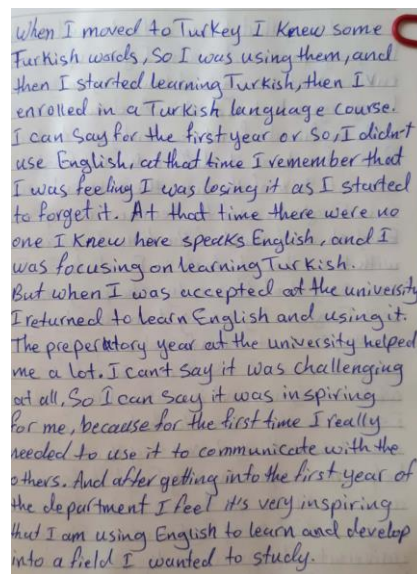 When I moved to Turkey I knew some
Turkish words, So I was using them, and
then I started learning Turkish, then I
enrolled in a Turkish language course.
I can say for the first year or so, I didn't
use English, at that time I remember that
I was feeling I was losing it as I started
to forget it. At that time there were no
one I knew here speaks English, and I
was focusing on learning Turkish.
But when I was accepted at the university
I returned to learn English and using it.
The preperatory year at the university helped
me a lot. I can't say it was challenging
at all, So I can say it was inspiring
for me, because for the first time I really
needed to use it to communicate with the
others. And after getting into the first year of
the department I feel it's very inspiring
that I am using English to learn and develop
into a field I wanted to study.